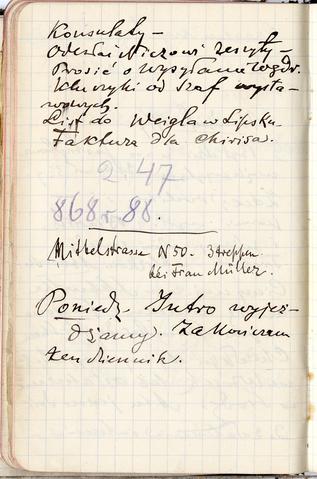 Konsulaty –
Odesłać Niczowi zeszyty –
Prosić o wysyłanie
Kluczyki od szaf wysta-
wowych.
List do Weigla w Lipsku.
Faktura dla Chirisa.
2 47
868 88.
Mittelstrasse N 50. 3 treppen
bei Frau Müller.
Poniedz. Jutro wyjeż-
dżamy. Zakończam
ten dziennik.